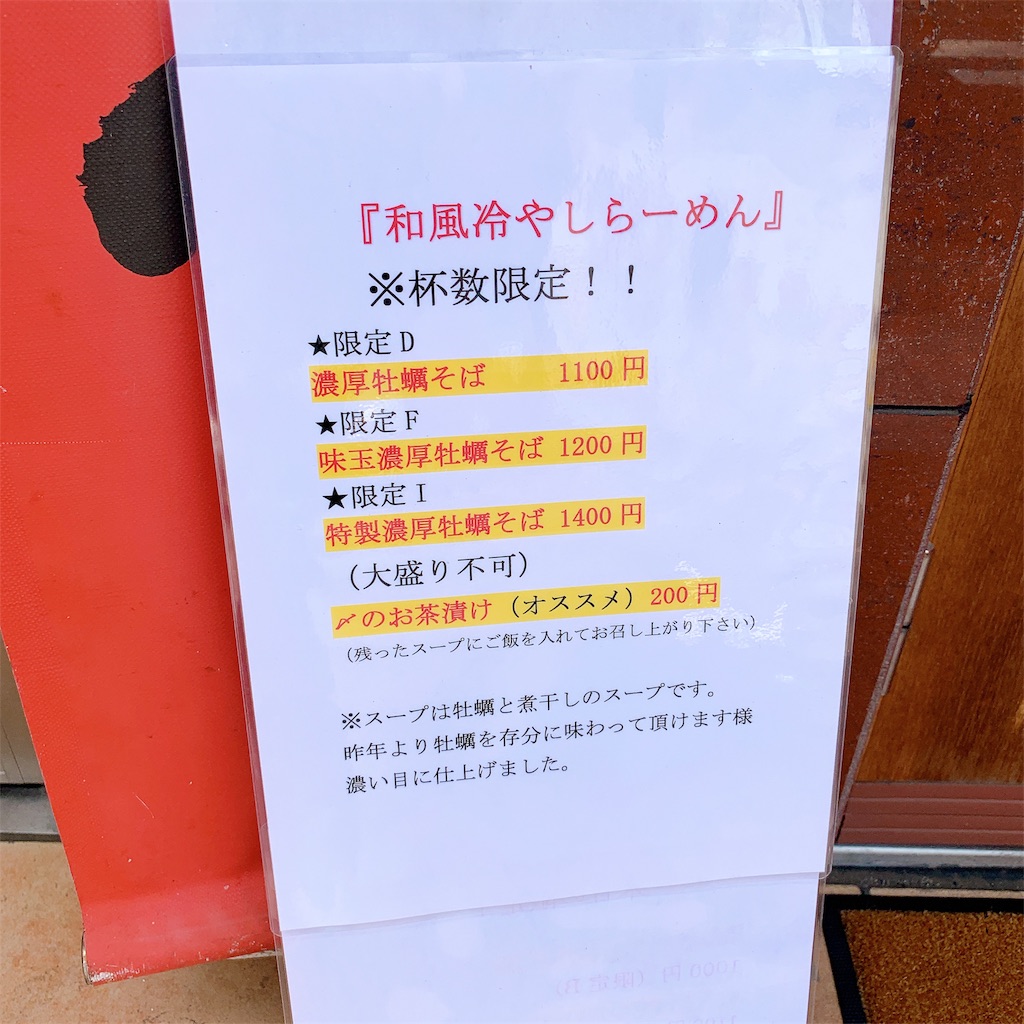 『和風冷やしらーめん』
※杯数限定！！
★限定D
濃厚牡蠣そば 1100円
★限定F
味玉濃厚牡蠣そば 1200円
★限定I
特製濃厚牡蠣そば 1400円
（大盛り不可）
〆のお茶漬け（オススメ）200円
（残ったスープにご飯を入れてお召し上がり下さい）
※スープは牡蠣と煮干しのスープです。
昨年より牡蠣を存分に味わって頂けます様
濃い目に仕上げました。